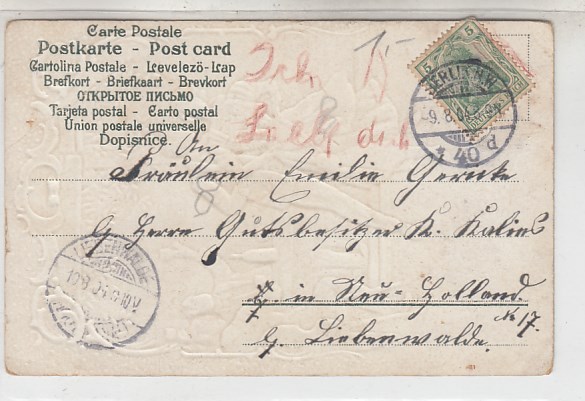 Carte Postale
Postkarte - Post card
Cartolina Postale - Levelező-Lap
Brefkort - Briefkaart - Brevkort
ОТКРЫТОЕ ПИСЬМО
Tarjeta postal - Carto postal
Union postale universelle
Dopisnice.
5 5
BERLIN
-9. 8.
* 40 d
8
An
Fräulein Emilie Gericke
Herrn Gutsbesitzer K. Kalies
in Neu-Holland
No 17.
Liebenwalde.
LIEBENWALDE
10 8